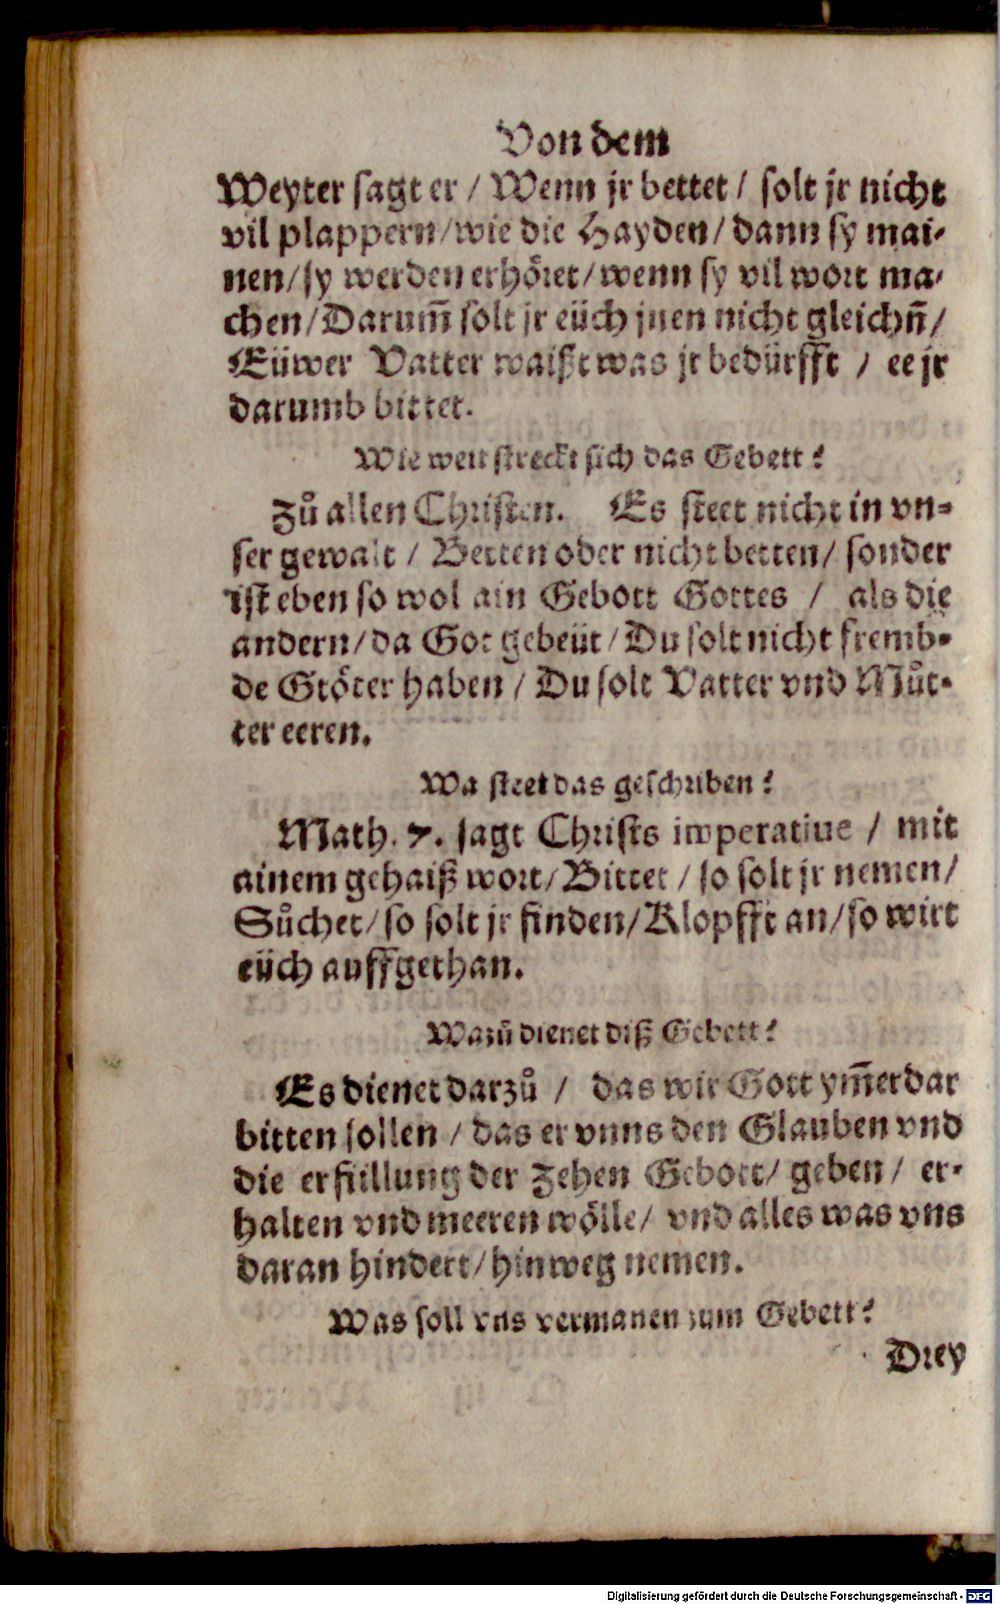 Von dem
Weyter sagt er / Wenn jr bettet / solt jr nicht
vil plappern / wie die Hayden / dann sy mai-
nen / sy werden erhöret / wenn sy vil wort ma-
chen / Darum̃ solt jr eüch jnen nicht gleichñ /
Eüwer Vatter waißt was jr bedürfft / ee jr
darumb bittet.
Wie weit streckt sich das Gebett?
Zů allen Christen. Es steet nicht in vn-
ser gewalt / Betten oder nicht betten / sonder
ist eben so wol ain Gebott Gottes / als die
andern / da Got gebeüt / Du solt nicht fremb-
de Gtöter haben / Du solt Vatter vnd Můt-
ter eeren.
Wa steet das geschriben?
Math. 7. sagt Christs imperatiue / mit
ainem gehaiß wort / Bittet / so solt jr nemen /
Sůchet / so solt jr finden / Klopfft an / so wirt
eüch auffgethan.
Wazů dienet diß Gebett?
Es dienet darzů / das wir Gott ym̃erdar
bitten sollen / das er vnns den Glauben vnd
die erfüllung der Zehen Gebott / geben / er-
halten vnd meeren wölle / vnd alles was vns
daran hindert / hinweg nemen.
Was soll vns vermanen zum Gebett?
Drey
Digitalisierung gefördert durch die Deutsche Forschungsgemeinschaft - DFG